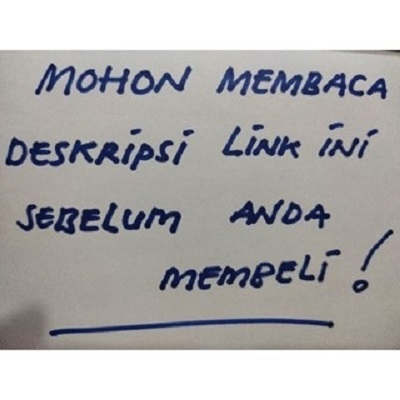 MOHON MEMBACA
DESKRIPSI LINK INI
SEBELUM ANDA
MEMBELI!